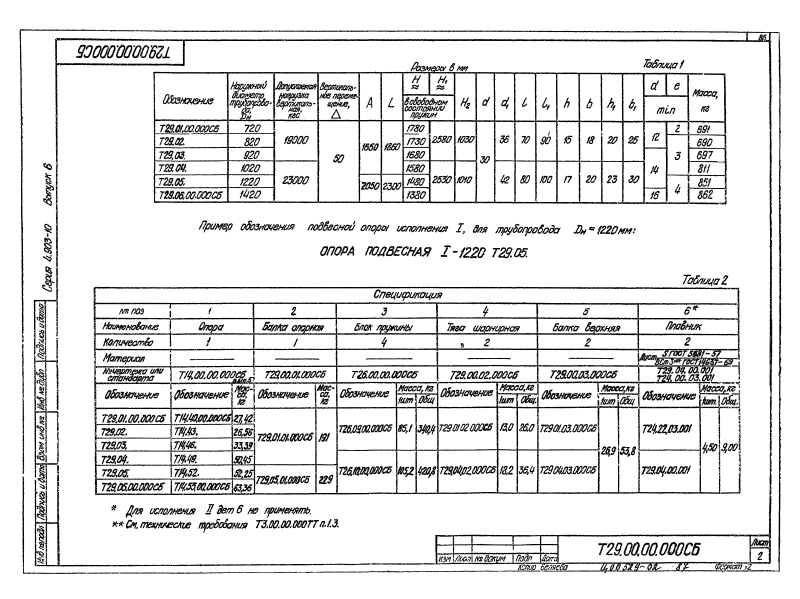 86
Т29.00.00.000СБ
Размеры в мм
Таблица 1
Обозначение | Наружный диаметр трубопровода, Dн | Допускаемая нагрузка вертикальная, кгс | Вертикальное перемещение, △ | A | L | H ≈ | H₁ ≈ | в свободном состоянии пружин | H₂ | d | d₁ | l | l₁ | h | b | h₁ | b₁ | d | e | min | Масса, кг
Т29.01.00.000СБ | 720 | 19000 | 50 | 1650 | 1860 | 1780 | 2580 | 1030 | 30 | 36 | 70 | 90 | 15 | 18 | 20 | 25 | 12 | 2 | 691
Т29.02. | 820 | 1730 | 690
Т29.03. | 920 | 1680 | 3 | 697
Т29.04. | 1020 | 23000 | 2050 | 2300 | 1580 | 2530 | 1010 | 42 | 80 | 100 | 17 | 20 | 23 | 30 | 14 | 811
Т29.05. | 1220 | 1480 | 4 | 851
Т29.06.00.000СБ | 1420 | 1380 | 16 | 862
Пример обозначения подвесной опоры исполнения I, для трубопровода Dн = 1220 мм:
ОПОРА ПОДВЕСНАЯ I-1220 Т29.05.
Таблица 2
Спецификация
№№ поз | 1 | 2 | 3 | 4 | 5 | 6*
Наименование | Опора | Балка опорная | Блок пружины | Тяга шарнирная | Балка верхняя | Плавник
Количество | 1 | 1 | 4 | 2 | 2 | 2
Материал | Лист
№ чертежа или стандарта | Т14.00.00.000СБ вып.5 | Т29.00.01.000СБ | Т26.00.00.000СБ | Т29.00.02.000СБ | Т29.00.03.000СБ | Т29.04.00.001 Т24.00.03.001
Обозначение | Обозначение | Масса, кг | Обозначение | Масса, кг | Обозначение | Масса, кг 1шт Общ. | Обозначение | Масса, кг 1шт Общ. | Обозначение | Масса, кг 1шт Общ | Обозначение | Масса, кг 1шт Общ.
Т29.01.00.000СБ | Т14.40.00.000СБ | 27,42 | Т29.01.01.000СБ | 191 | Т26.09.00.000СБ | 85,1 | 340,4 | Т29.01.02.000СБ | 13,0 | 26,0 | Т29.01.03.000СБ | 26,9 | 53,8 | Т24.22.03.001 | 4,50 | 9,00
Т29.02. | Т14.43. | 26,56
Т29.03. | Т14.46. | 33,39
Т29.04. | Т14.49. | 50,45 | Т29.05.01.000СБ | 229 | Т26.10.00.000СБ | 105,2 | 420,8 | Т29.04.02.000СБ | 18,2 | 36,4 | Т29.04.03.000СБ | Т29.04.00.001
Т29.05. | Т14.52. | 52,25
Т29.06.00.000СБ | Т14.53.00.000СБ | 63,36
* Для исполнения II дет 6 не применять.
** См. технические требования Т3.00.00.000ТТ п.1.3.
Изм | Лист | № докум | Подп | Дата
Т29.00.00.000СБ
Лист
2
Копир Беляева
Ц00524-02 87
Формат 12
Серия 4.903-10 Выпуск 6
Инв № подл | Подпись и дата | Взам инв № | Инв № дубл | Подпись и дата